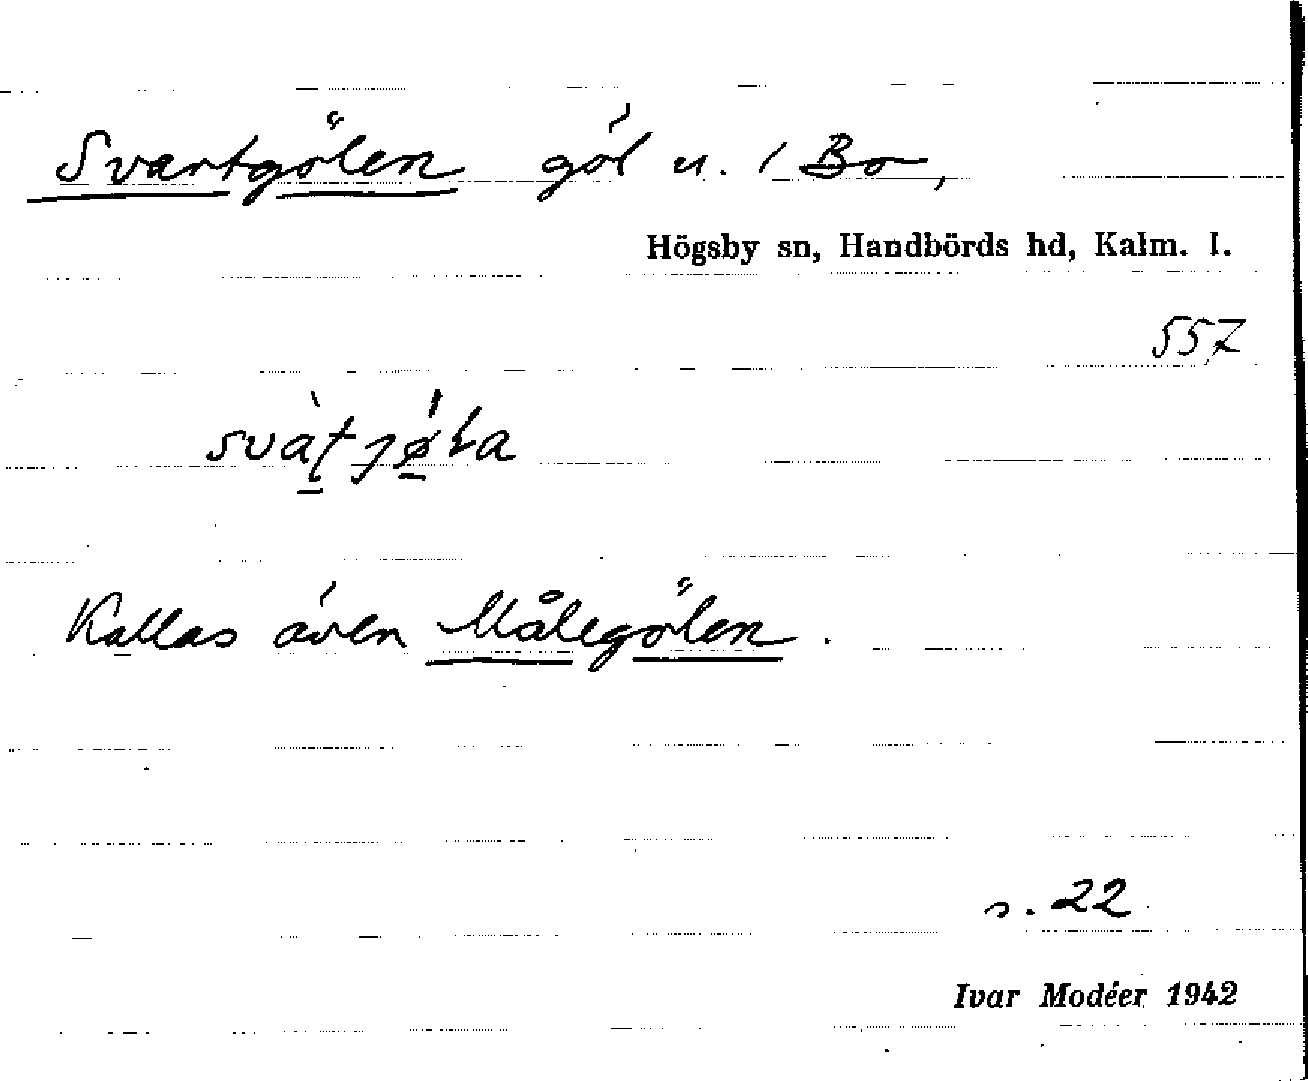 Svartgölen göl u. / Bo,
Högsby sn, Handbörds hd, Kalm. l.
557
svàṭɟǿ̱ɫa
Kallas även Målegölen.
s. 22
Ivar Modéer 1942